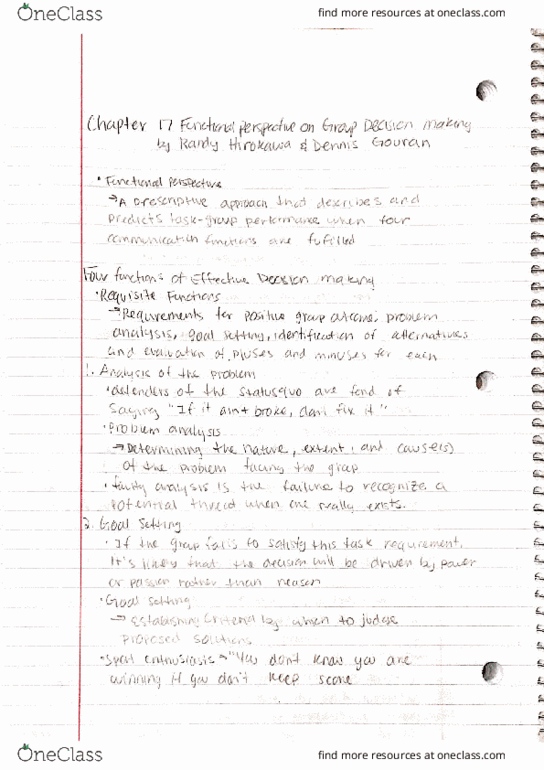 OneClass
find more resources at oneclass.com
Chapter 17 Functional perspective on Group Decision making
by Randy Hirokawa & Dennis Gouran
• Functional Perspective
→ A prescriptive approach that describes and
predicts task-group performance when four
communication functions are fufilled
Four functions of Effective Decision making
• Requisite Functions
→ Requirements for positive group outcome: problem
analysis, goal setting, identification of alternatives
and evaluation of pluses and minuses for each
1. Analysis of the problem
• defenders of the status quo are fond of
saying "If it aint broke, dont fix it"
• Problem analysis
→ Determining the nature, extent, and cause(s)
of the problem facing the group
• faulty analysis is the failure to recognize a
potential threat when one really exists.
2. Goal Setting
• If the group fails to satisfy this task requirement,
it's likely that the decision will be driven by power
or passion rather than reason
• Goal setting
→ Establishing criteria by when to judge
proposed solutions
• Sport enthusiasts → "You don't know you are
winning if you don't keep score
OneClass
find more resources at oneclass.com